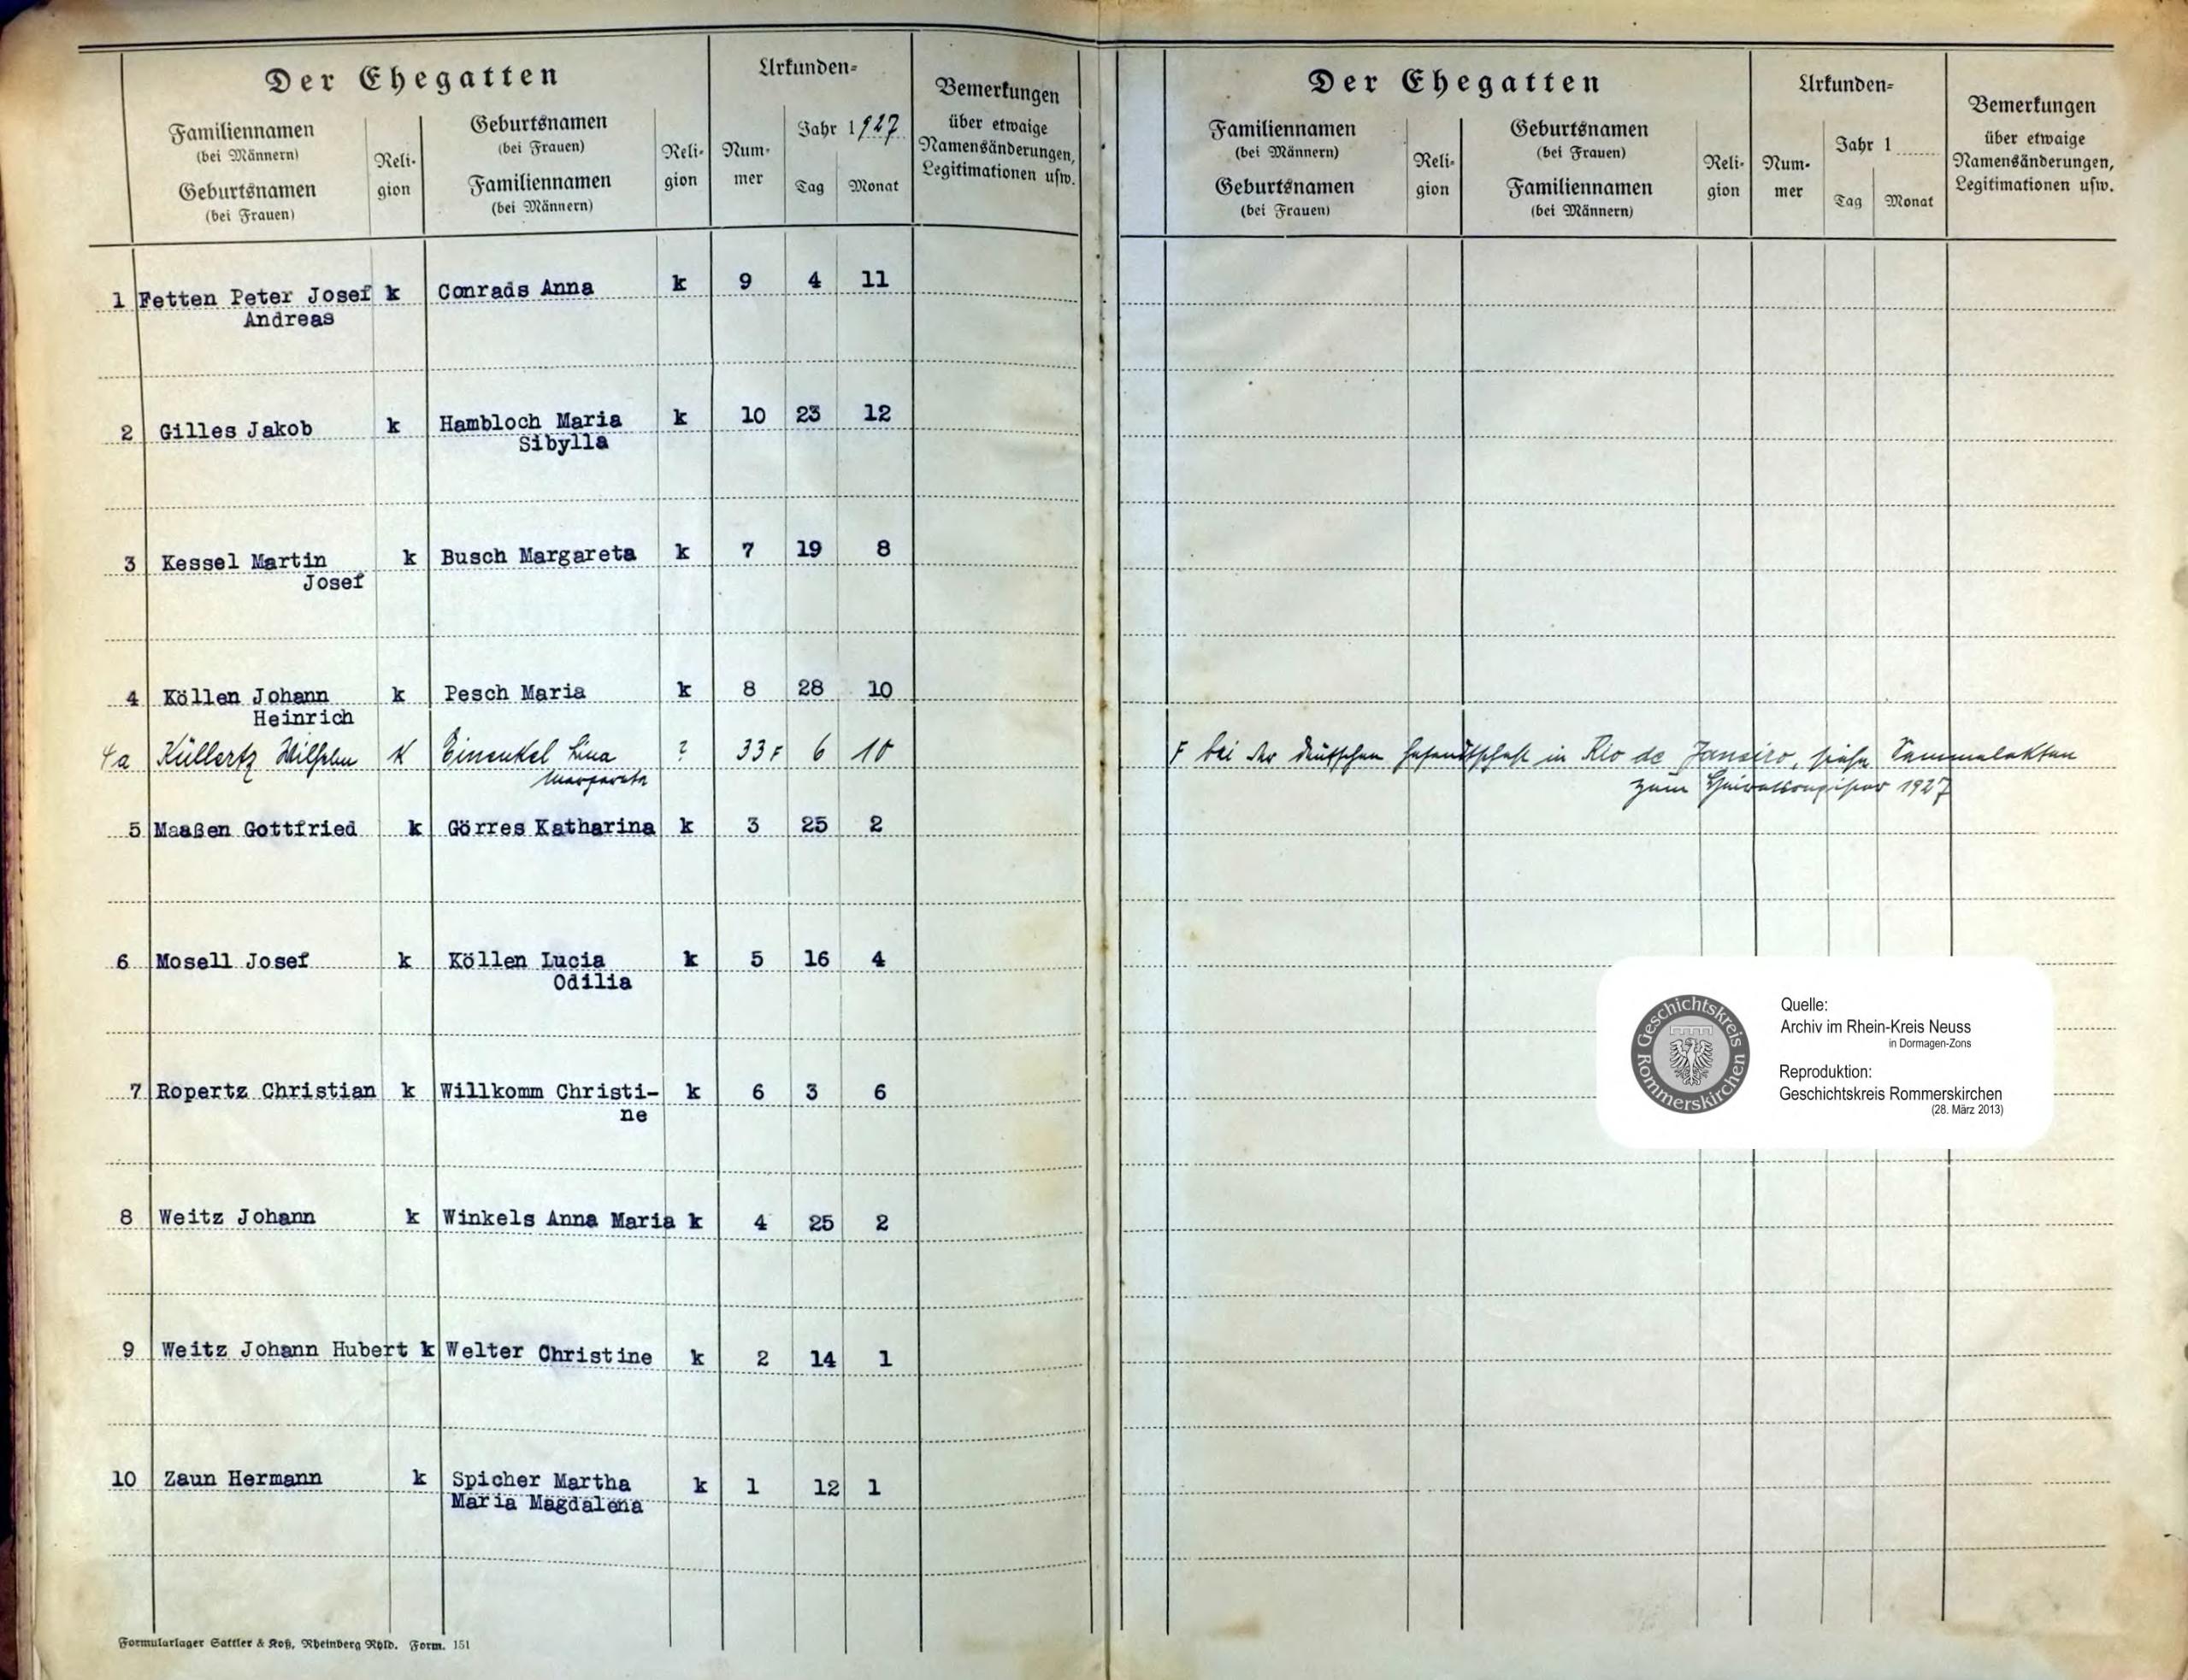 Der Ehegatten
Familiennamen
(bei Männern)
Geburtsnamen
(bei Frauen)
Reli-
gion
Geburtsnamen
(bei Frauen)
Familiennamen
(bei Männern)
Reli-
gion
Urkunden-
Num-
mer
Jahr 1927
Tag
Monat
Bemerkungen
über etwaige
Namensänderungen,
Legitimationen usw.
1 Fetten Peter Josef k Conrads Anna k 9 4 11
Andreas
2 Gilles Jakob k Hambloch Maria k 10 23 12
Sibylla
3 Kessel Martin k Busch Margareta k 7 19 8
Josef
4 Köllen Johann k Pesch Maria k 8 28 10
Heinrich
4a Küllertz Wilhelm K Einenkel Lina ? 33 F 6 10
Margareta
5 Maaßen Gottfried k Görres Katharina k 3 25 2
6 Mosell Josef k Köllen Lucia k 5 16 4
Odilia
7 Ropertz Christian k Willkomm Christi- k 6 3 6
ne
8 Weitz Johann k Winkels Anna Maria k 4 25 2
9 Weitz Johann Hubert k Welter Christine k 2 14 1
10 Zaun Hermann k Spicher Martha k 1 12 1
Maria Magdalena
Formularlager Sattler & Koß, Rheinberg Rhld. Form. 151
Der Ehegatten
Familiennamen
(bei Männern)
Geburtsnamen
(bei Frauen)
Reli-
gion
Geburtsnamen
(bei Frauen)
Familiennamen
(bei Männern)
Reli-
gion
Urkunden-
Num-
mer
Jahr 1
Tag
Monat
Bemerkungen
über etwaige
Namensänderungen,
Legitimationen usw.
F bei der deutschen Gesandtschaft in Rio de Janeiro, siehe Sammelakten
zum Heiratsregister 1927
Geschichtskreis
Rommerskirchen
Quelle:
Archiv im Rhein-Kreis Neuss
in Dormagen-Zons
Reproduktion:
Geschichtskreis Rommerskirchen
(28. März 2013)